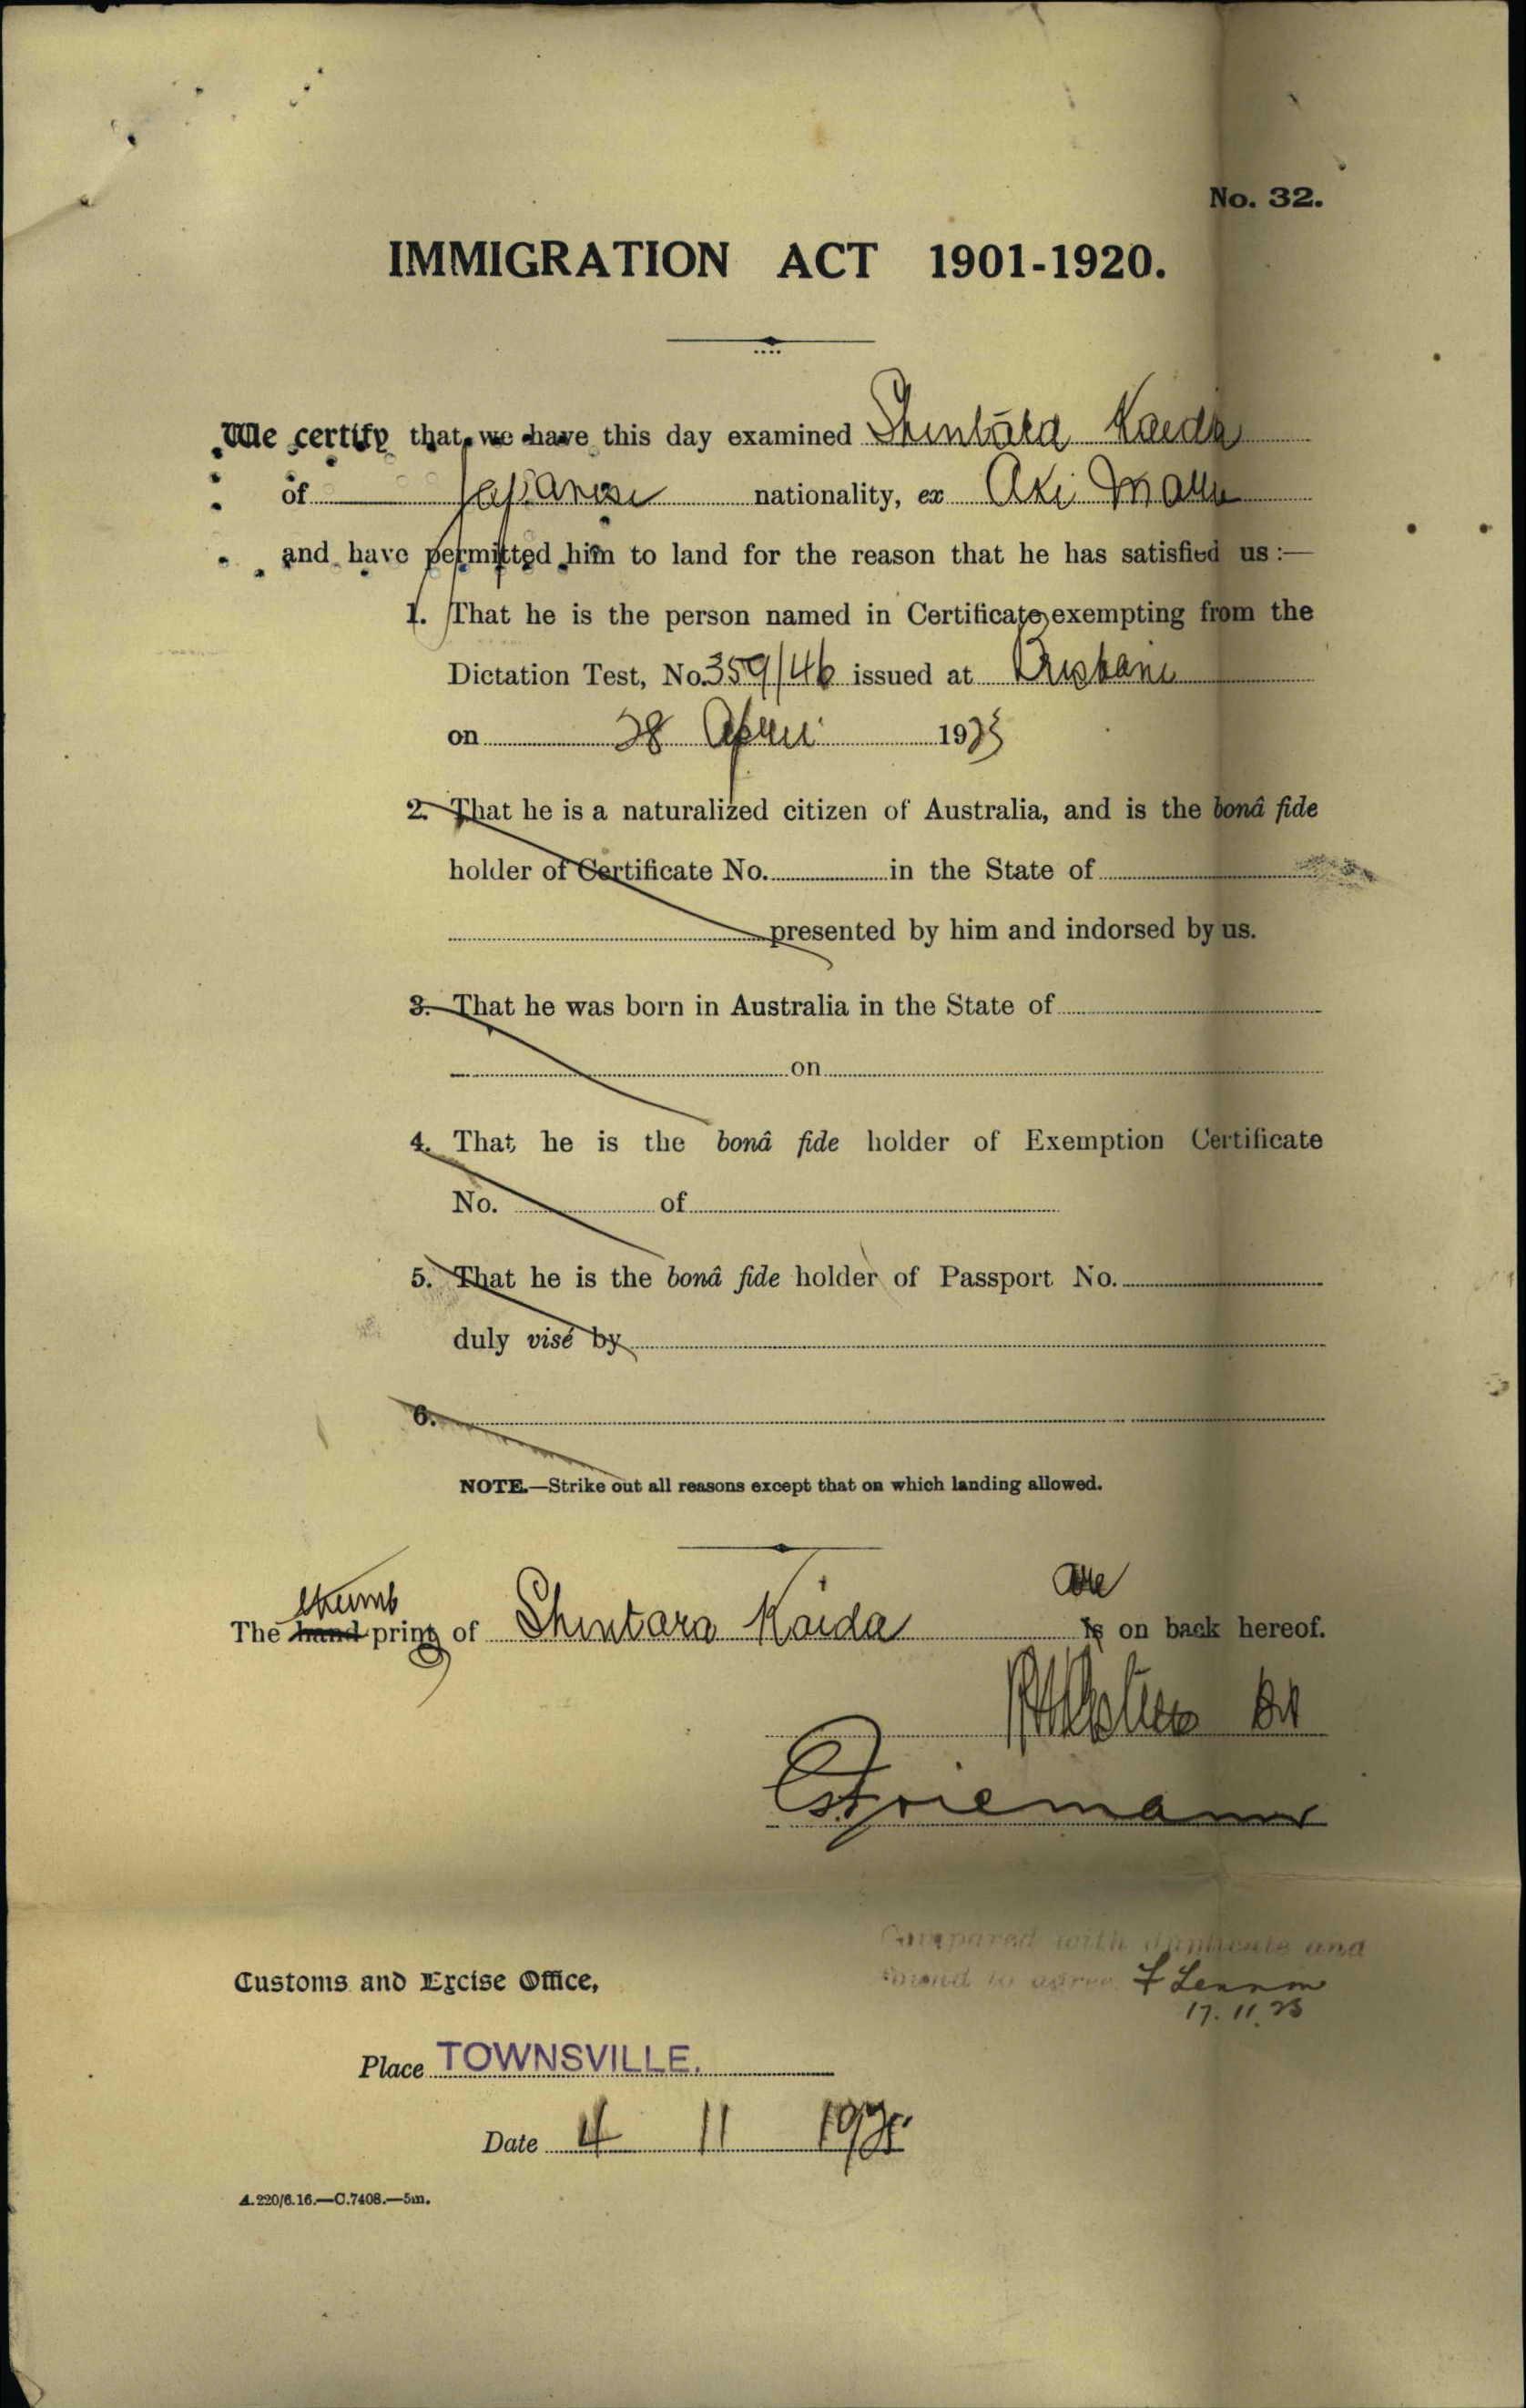 No. 32.
IMMIGRATION ACT 1901-1920.
We certify that we have this day examined Shintara Kaida
of Japanese nationality, ex Aki Maru
and have permitted him to land for the reason that he has satisfied us :—
1. That he is the person named in Certificate exempting from the
Dictation Test, No. 359/46 issued at Brisbane
on 28 April 1923
2. That he is a naturalized citizen of Australia, and is the bonâ fide
holder of Certificate No. in the State of
presented by him and indorsed by us.
3. That he was born in Australia in the State of
on
4. That he is the bonâ fide holder of Exemption Certificate
No. of
5. That he is the bonâ fide holder of Passport No.
duly visé by
6.
NOTE.—Strike out all reasons except that on which landing allowed.
thumb are
The hand prints of Shintara Kaida is on back hereof.
Compared with duplicate and
found to agree F Lennon
17.11.25
Customs and Excise Office,
Place TOWNSVILLE.
Date 4 11 1925
A.220/6.16.—C.7408.—5m.